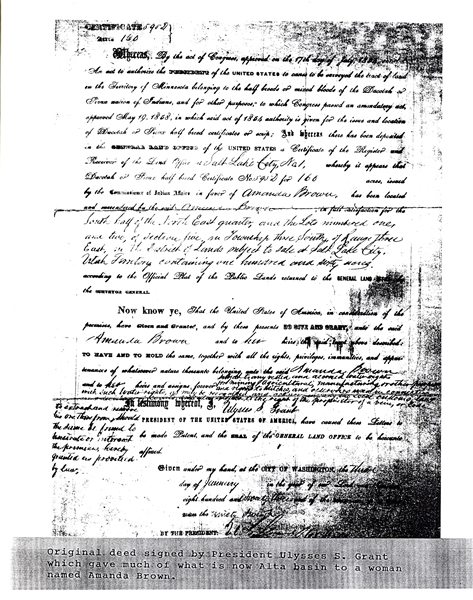 CERTIFICATE 5902
160
Whereas, By the act of Congress, approved on the 17th day of July, 1854,
An act to authorize the PRESIDENT of the UNITED STATES to cause to be surveyed the tract of land
in the Territory of Minnesota belonging to the half breeds or mixed bloods of the Dacotah or
Sioux nation of Indians, and for other purposes; to which Congress passed an amendatory act,
approved May 19, 1858, in which said act of 1854 authority is given for the issue and location
of Dacotah or Sioux half breed certificates or scrip; And whereas there has been deposited
in the GENERAL LAND OFFICE of the UNITED STATES a Certificate of the Register and
Receiver of the Land Office at Salt Lake City, No 1, whereby it appears that
Dacotah or Sioux half breed Certificate No 5902 for 160 acres, issued
by the Commissioner of Indian Affairs in favor of Amanda Brown, has been located
and surrendered by the said Amanda Brown in full satisfaction for the
South half of the North East quarter, and the Lots numbered one,
and two, of section five, in Township three South, of Range three
East, in the District of Lands subject to sale at Salt Lake City,
Utah Territory containing one hundred and sixty acres
according to the Official Plat of the Public Lands returned to the GENERAL LAND
the SURVEYOR GENERAL
Now know ye, That the United States of America, in consideration of the
premises, have GIVEN and GRANTED, and by these presents DO GIVE AND GRANT, unto the said
Amanda Brown and to her heirs, the said tract above described;
TO HAVE AND TO HOLD the same, together with all the rights, privileges, immunities, and appur-
tenances of whatsoever nature thereunto belonging, unto the said Amanda Brown
and to her heirs and assigns forever
In testimony whereof, I, Ulysses S. Grant
PRESIDENT OF THE UNITED STATES OF AMERICA, have caused these Letters to
be made Patent, and the SEAL of the GENERAL LAND OFFICE to be hereunto
affixed.
to extract and remove
the same be found to
the premises hereby
granted as provided
by law.
Given under my hand, at the CITY OF WASHINGTON, the
day of January in the year of our Lord
eight hundred and seventy three and of the
ninety
BY THE PRESIDENT:
Original deed signed by President Ulysses S. Grant
which gave much of what is now Alta basin to a woman
named Amanda Brown.